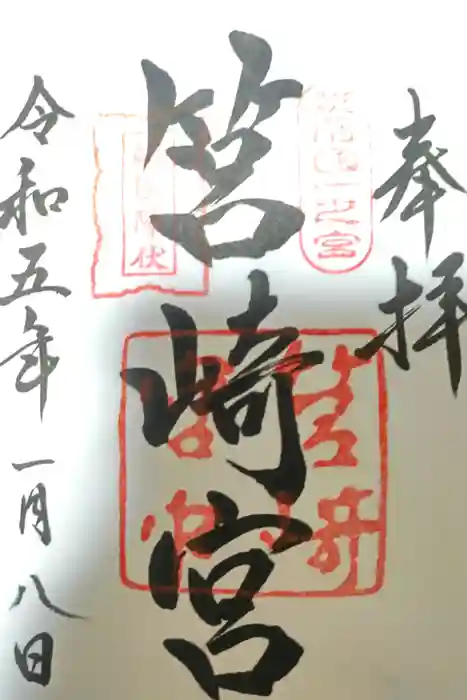 奉拝
筑前國一之宮
筥崎宮
敵国降伏
令和五年一月八日